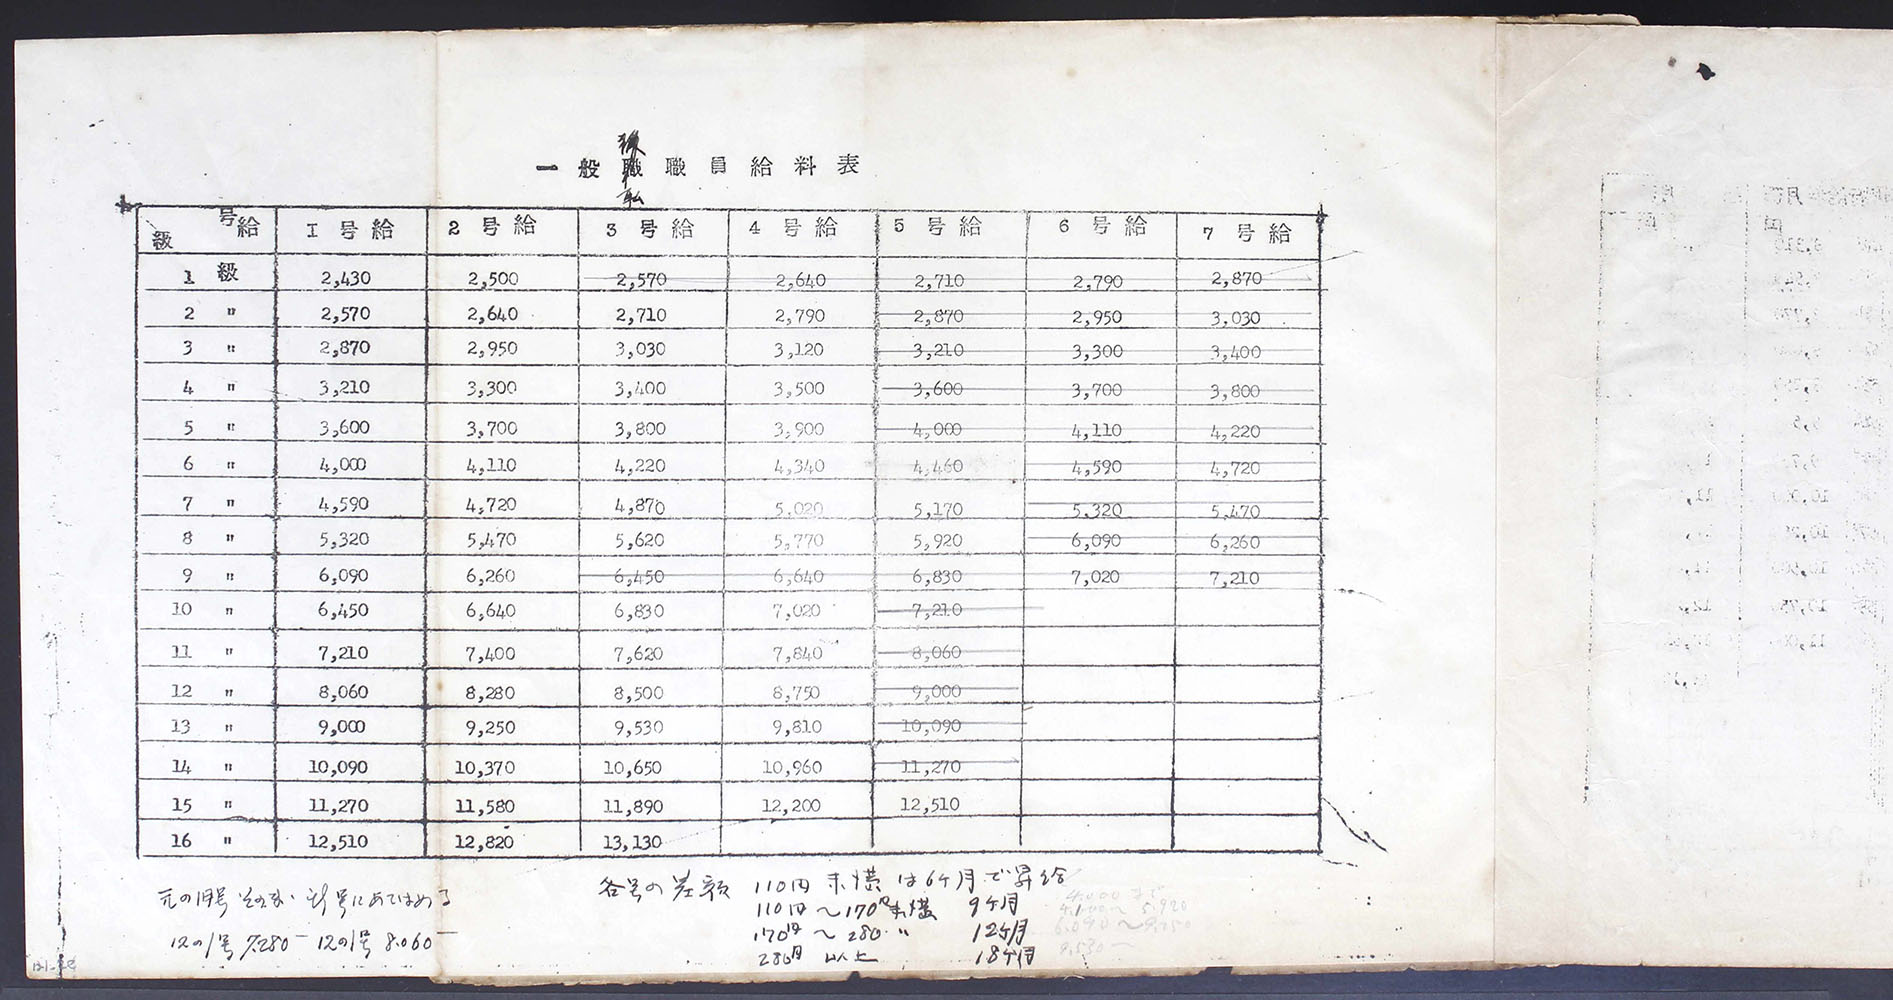 一般職職員給料表
号給 級 1号給 2号給 3号給 4号給 5号給 6号給 7号給
1 級 2,430 2,500 2,570 2,640 2,710 2,790 2,870
2 〃 2,570 2,640 2,710 2,790 2,870 2,950 3,030
3 〃 2,870 2,950 3,030 3,120 3,210 3,300 3,400
4 〃 3,210 3,300 3,400 3,500 3,600 3,700 3,800
5 〃 3,600 3,700 3,800 3,900 4,000 4,110 4,220
6 〃 4,000 4,110 4,220 4,340 4,460 4,590 4,720
7 〃 4,590 4,720 4,870 5,020 5,170 5,320 5,470
8 〃 5,320 5,470 5,620 5,770 5,920 6,090 6,260
9 〃 6,090 6,260 6,450 6,640 6,830 7,020 7,210
10 〃 6,450 6,640 6,830 7,020 7,210
11 〃 7,210 7,400 7,620 7,840 8,060
12 〃 8,060 8,280 8,500 8,750 9,000
13 〃 9,000 9,250 9,530 9,810 10,090
14 〃 10,090 10,370 10,650 10,960 11,270
15 〃 11,270 11,580 11,890 12,200 12,510
16 〃 12,510 12,820 13,130
各号の差額 110円未満は6ケ月で昇給
110円〜170円未満 9ケ月
170円〜280〃 12ケ月
280円以上 18ケ月
12の1号 7.280ー 12の1号 8.060ー